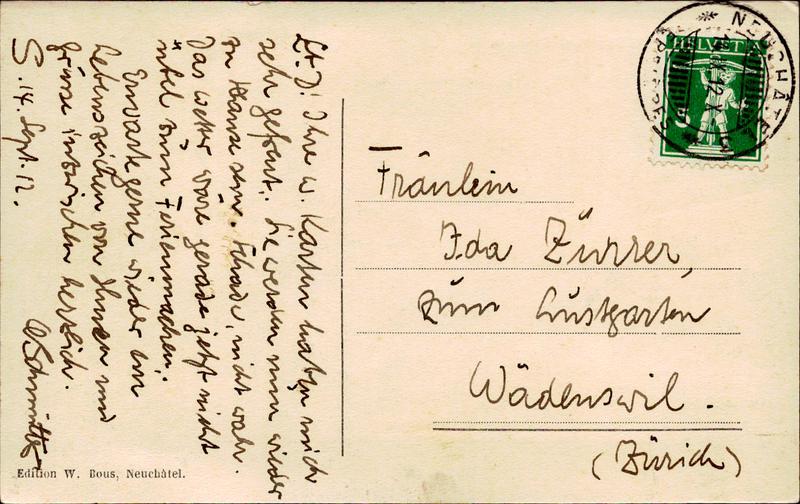 Lb. D! Ihre w. Karten haben mich
sehr gefreut. Sie werden nun wieder
zu Hause sein. Schade, nicht wahr.
Das Wetter wäre gerade jetzt nicht
übel zum Ferienmachen.
Erwarte gerne wieder ein
Lebenszeichen von Ihnen und
grüsse inzwischen herzlich.
S. 14. Sept. 12.
Fräulein
Ida Zürrer,
zum Lustgarten
Wädenswil.
(Zürich)
HELVETIA
NEUCHÂTEL
Edition W. Bous, Neuchâtel.